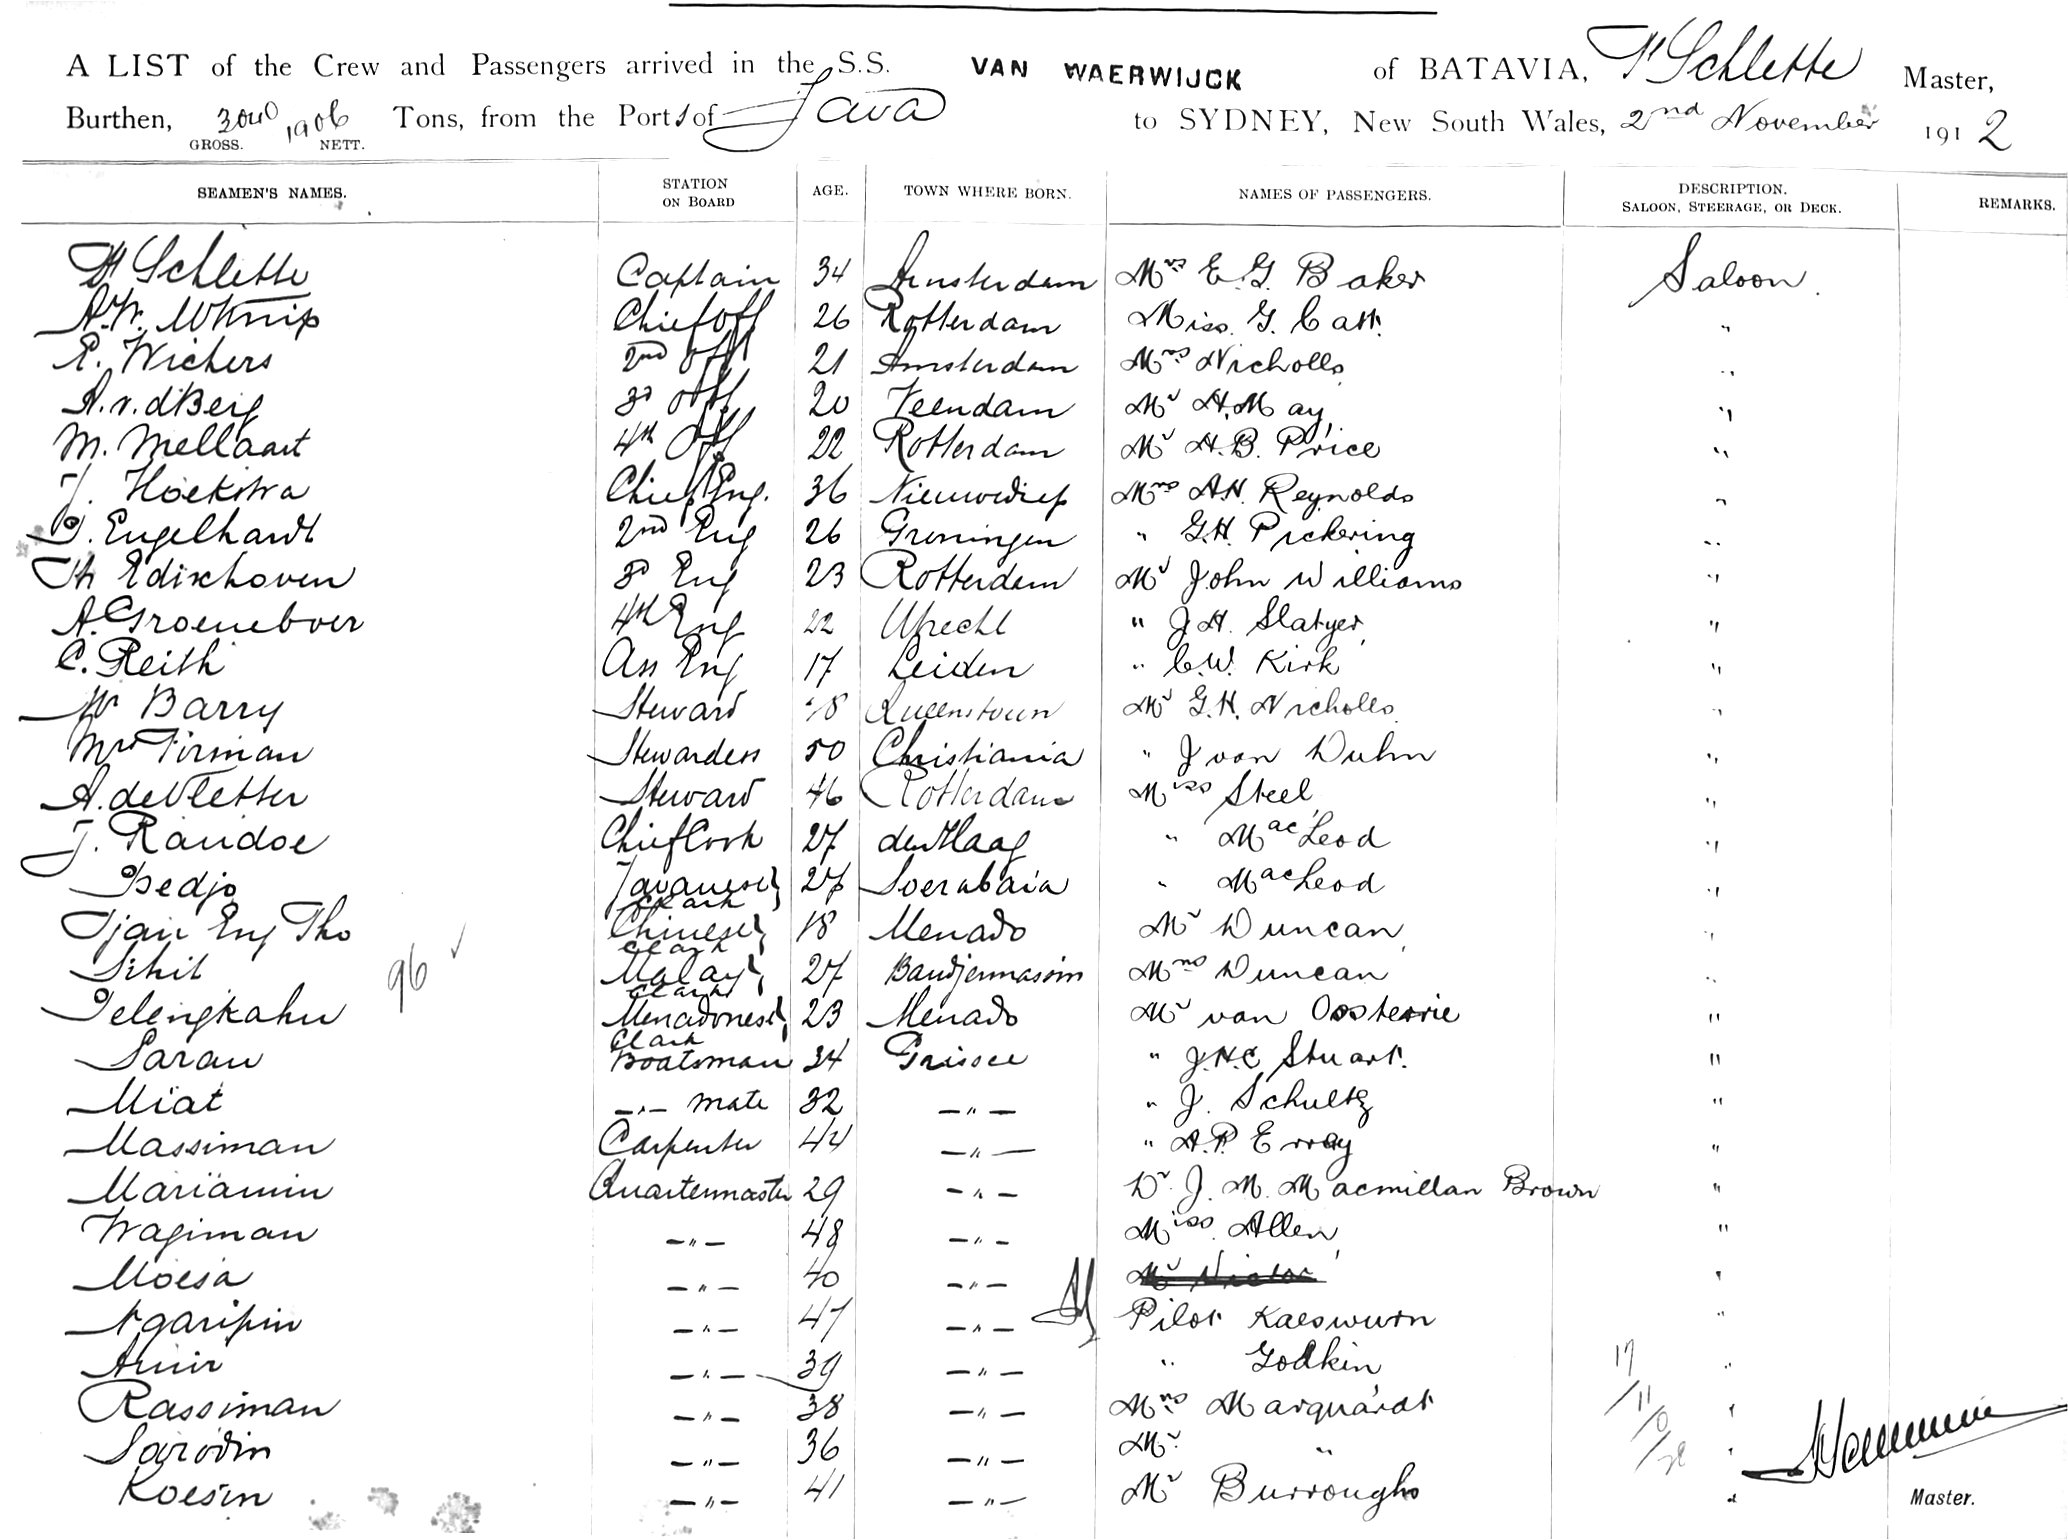 A LIST of the Crew and Passengers arrived in the S.S. VAN WAERWIJCK of BATAVIA, Schlette Master,
Burthen, 3040 1906 Tons, from the Ports of Java to SYDNEY, New South Wales, 2nd November 1912
GROSS. NETT.
SEAMEN'S NAMES. STATION ON BOARD AGE. TOWN WHERE BORN. NAMES OF PASSENGERS. DESCRIPTION. SALOON, STEERAGE, OR DECK. REMARKS.
Schlette Captain 34 Amsterdam Mrs E. G. Baker Saloon.
Chief Off 26 Rotterdam Miss. G. Catt. "
E. Wichers 2nd Off 21 Amsterdam Mrs Nicholls "
A. v. d Berg 3d Off 20 Veendam Mr H. May "
M. Mellaart 4th Off 22 Rotterdam Mr H. B. Price "
J. Hoekstra Chief Eng. 36 Nieuwediep Mrs A. H. Reynolds "
Engelhardt 2nd Eng 26 Groningen " G. H. Pickering "
Th Edixhoven 3d Eng 23 Rotterdam Mr John Williams "
A. Groeneboer 4th Eng 22 Utrecht " J. H. Slatyer "
C. Reith Ass Eng 17 Leiden " C. W. Kirk "
W Barry Steward Queenstown Mr G. H. Nicholls "
Mrs Tirman Stewardess 50 Christiania " J van Duhn "
A. de Vletter Steward 46 Rotterdam Miss Steel "
J. Randoe Chief Cook 27 den Haag " MacLeod "
Bedjo Javanese Clark 27 Soerabaia " MacLeod "
Tjan Eng Tho Chinese Clark 18 Menado Mr Duncan "
Sihil 96 ✓ Malay Clark 27 Bandjermasin Mrs Duncan "
Pelengkahu Menadonese Clark 23 Menado Mr van Oosterrie "
Saran Boatsman 34 Grissee " J. H. C Stuart. "
Miat -"- mate 32 -"- " J. Schultz "
Massiman Carpenter 44 -"- " A. P. Erray "
Mariamin Quartermaster 29 -"- Dr. J. M. Macmillan Brown "
Wagiman -"- 48 -"- Miss. Allen "
Moesa -"- 40 -"- Mr "
Ngaripin -"- 47 -"- Pilot Kaeswurn "
Amir -"- 39 -"- " Godkin 17 "
Rassiman -"- 38 -"- Mrs Marquardt /11 "
Sarodin -"- 36 -"- Mr. " "
Koesin -"- 41 -"- Mr Burroughs "
Master.